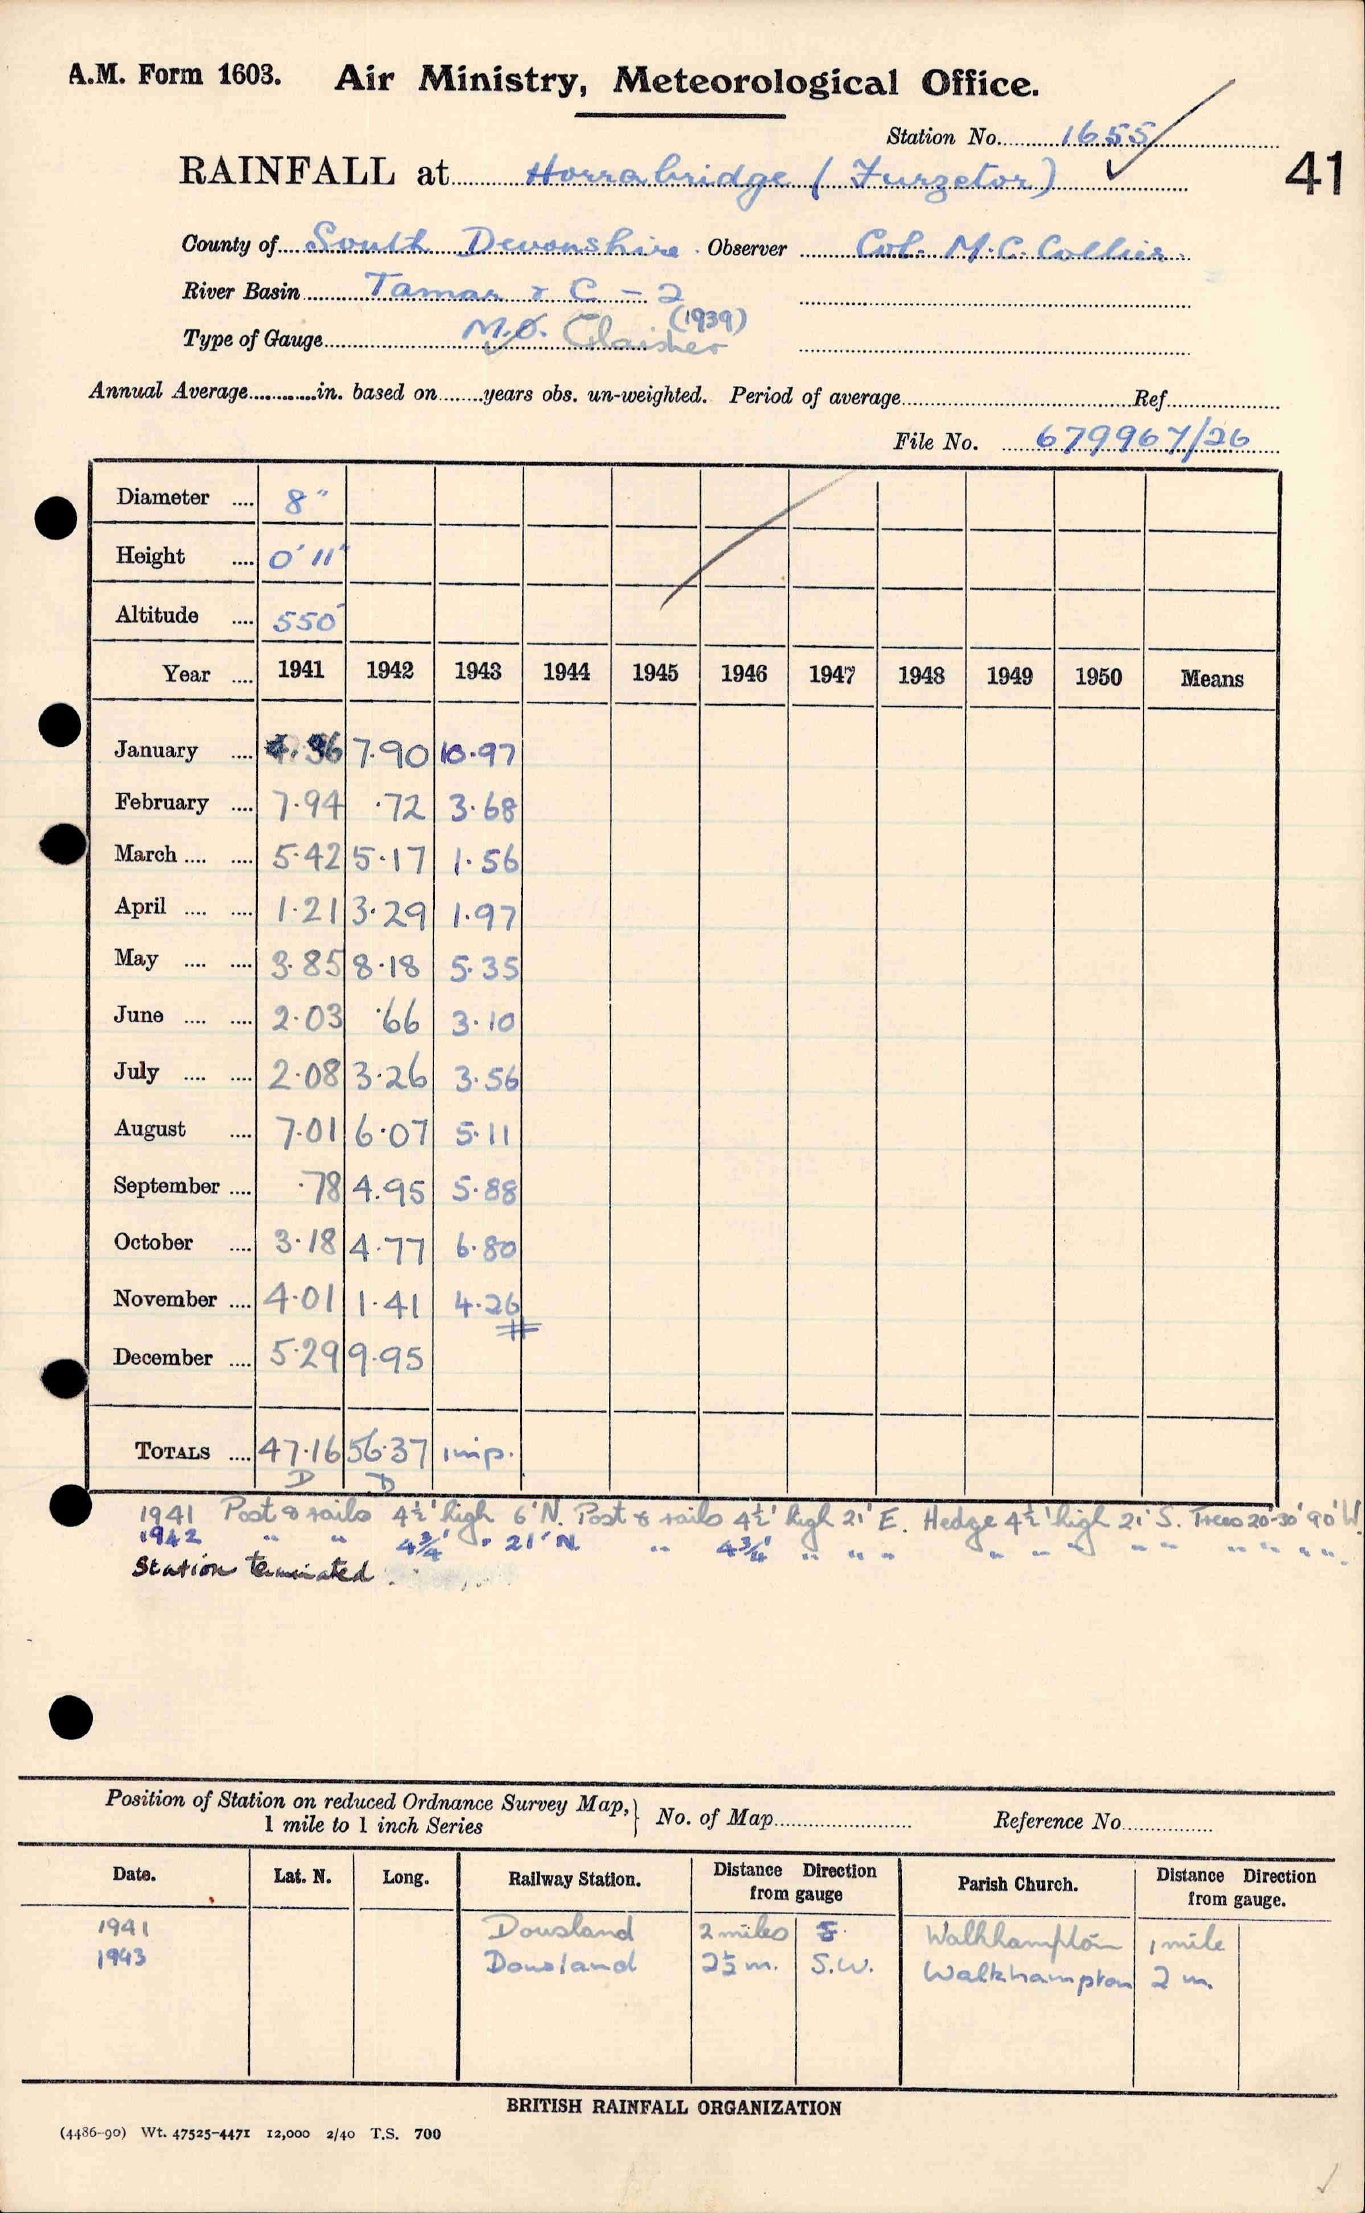 A.M. Form 1603. Air Ministry, Meteorological Office.
Station No. 1655
41
RAINFALL at Horrabridge (Furzetor)
County of South Devonshire. Observer Col. M.C. Collier.
River Basin Tamar & C - 2
Type of Gauge M.O. Glaisher (1939)
Annual Average............in. based on........years obs. un-weighted. Period of average........ Ref........
File No. 679967/26
Diameter .... 8"
Height .... 0' 11"
Altitude .... 550'
Year .... 1941 1942 1943 1944 1945 1946 1947 1948 1949 1950 Means
January .... 4.36 7.90 10.97
February .... 7.94 .72 3.68
March .... .... 5.42 5.17 1.56
April .... .... 1.21 3.29 1.97
May .... .... 3.85 8.18 5.35
June .... .... 2.03 .66 3.10
July .... .... 2.08 3.26 3.56
August .... 7.01 6.07 5.11
September .... .78 4.95 5.88
October .... 3.18 4.77 6.80
November .... 4.01 1.41 4.26
December .... 5.29 9.95
TOTALS .... 47.16 56.37 imp.
D D
1941 Post & rails 4½' high 6' N. Post & rails 4½' high 21' E. Hedge 4½' high 21' S. Trees 20'-30' 90' W.
1942 " " 4¾' " 21' N. " 4¾' " " " " " " " " " " " "
Station terminated
Position of Station on reduced Ordnance Survey Map, 1 mile to 1 inch Series } No. of Map........ Reference No........
Date. Lat. N. Long. Railway Station. Distance Direction from gauge Parish Church. Distance Direction from gauge.
1941 Dousland 2 miles S. Walkhampton 1 mile
1943 Dousland 2½ m. S.W. Walkhampton 2 m.
BRITISH RAINFALL ORGANIZATION
(4486-90) Wt. 47525-4471 12,000 2/40 T.S. 700